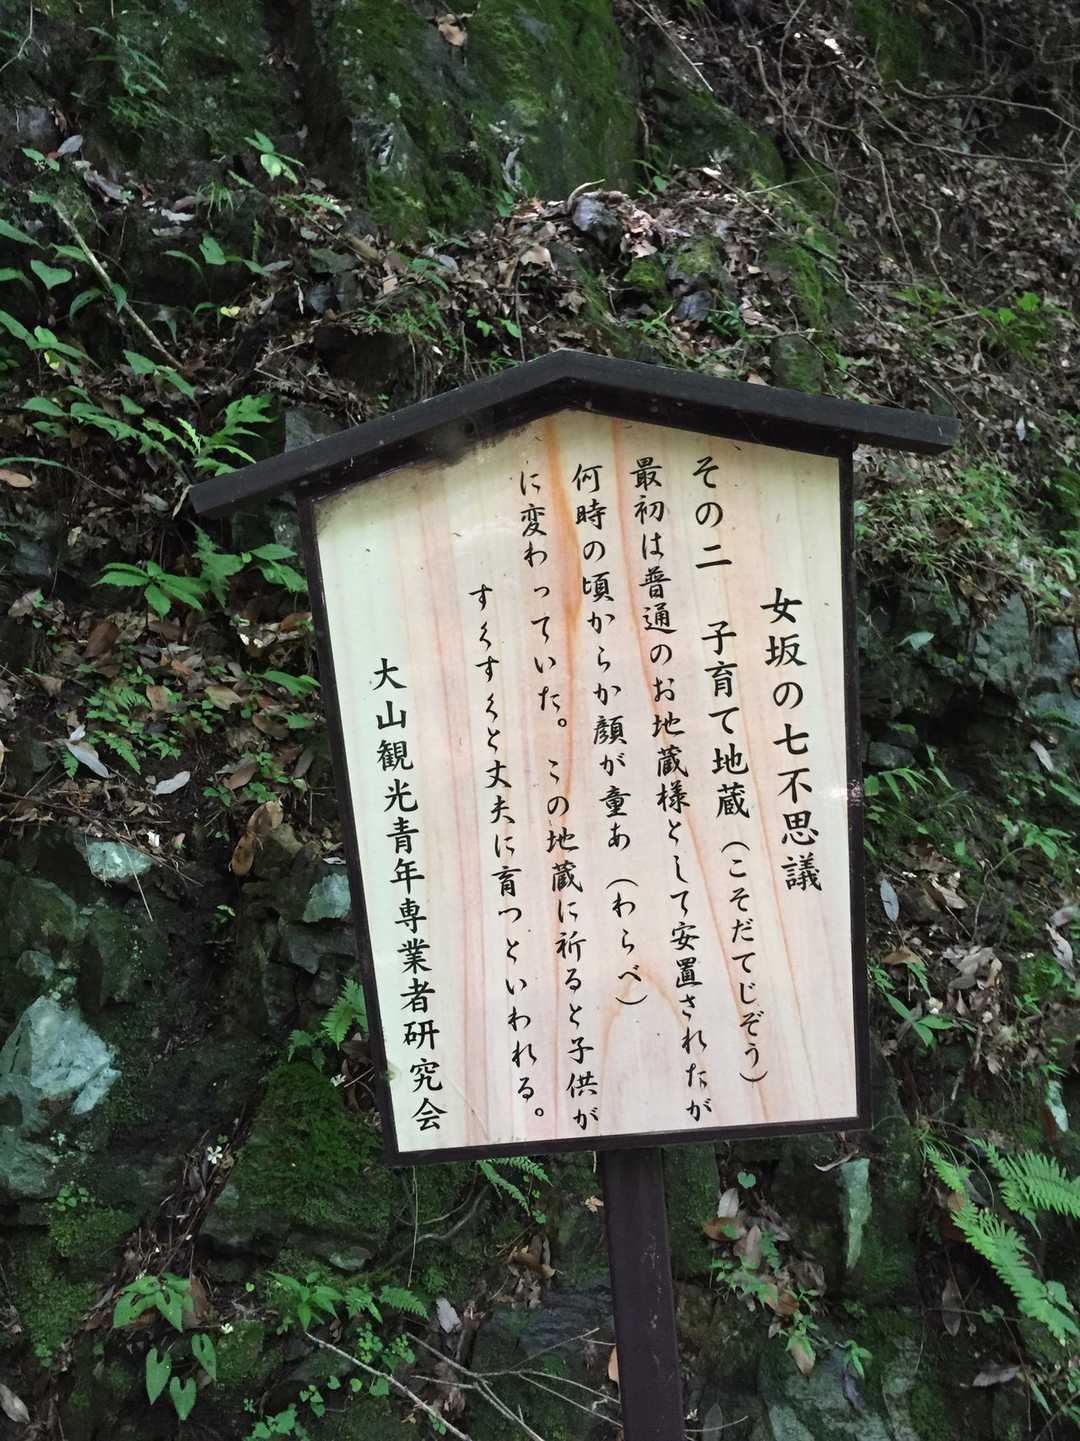 女坂の七不思議
その二 子育て地蔵（こそだてじぞう）
最初は普通のお地蔵様として安置されたが
何時の頃からか顔が童あ（わらべ）
に変わっていた。この地蔵に祈ると子供が
すくすくと丈夫に育つといわれる。
大山観光青年専業者研究会